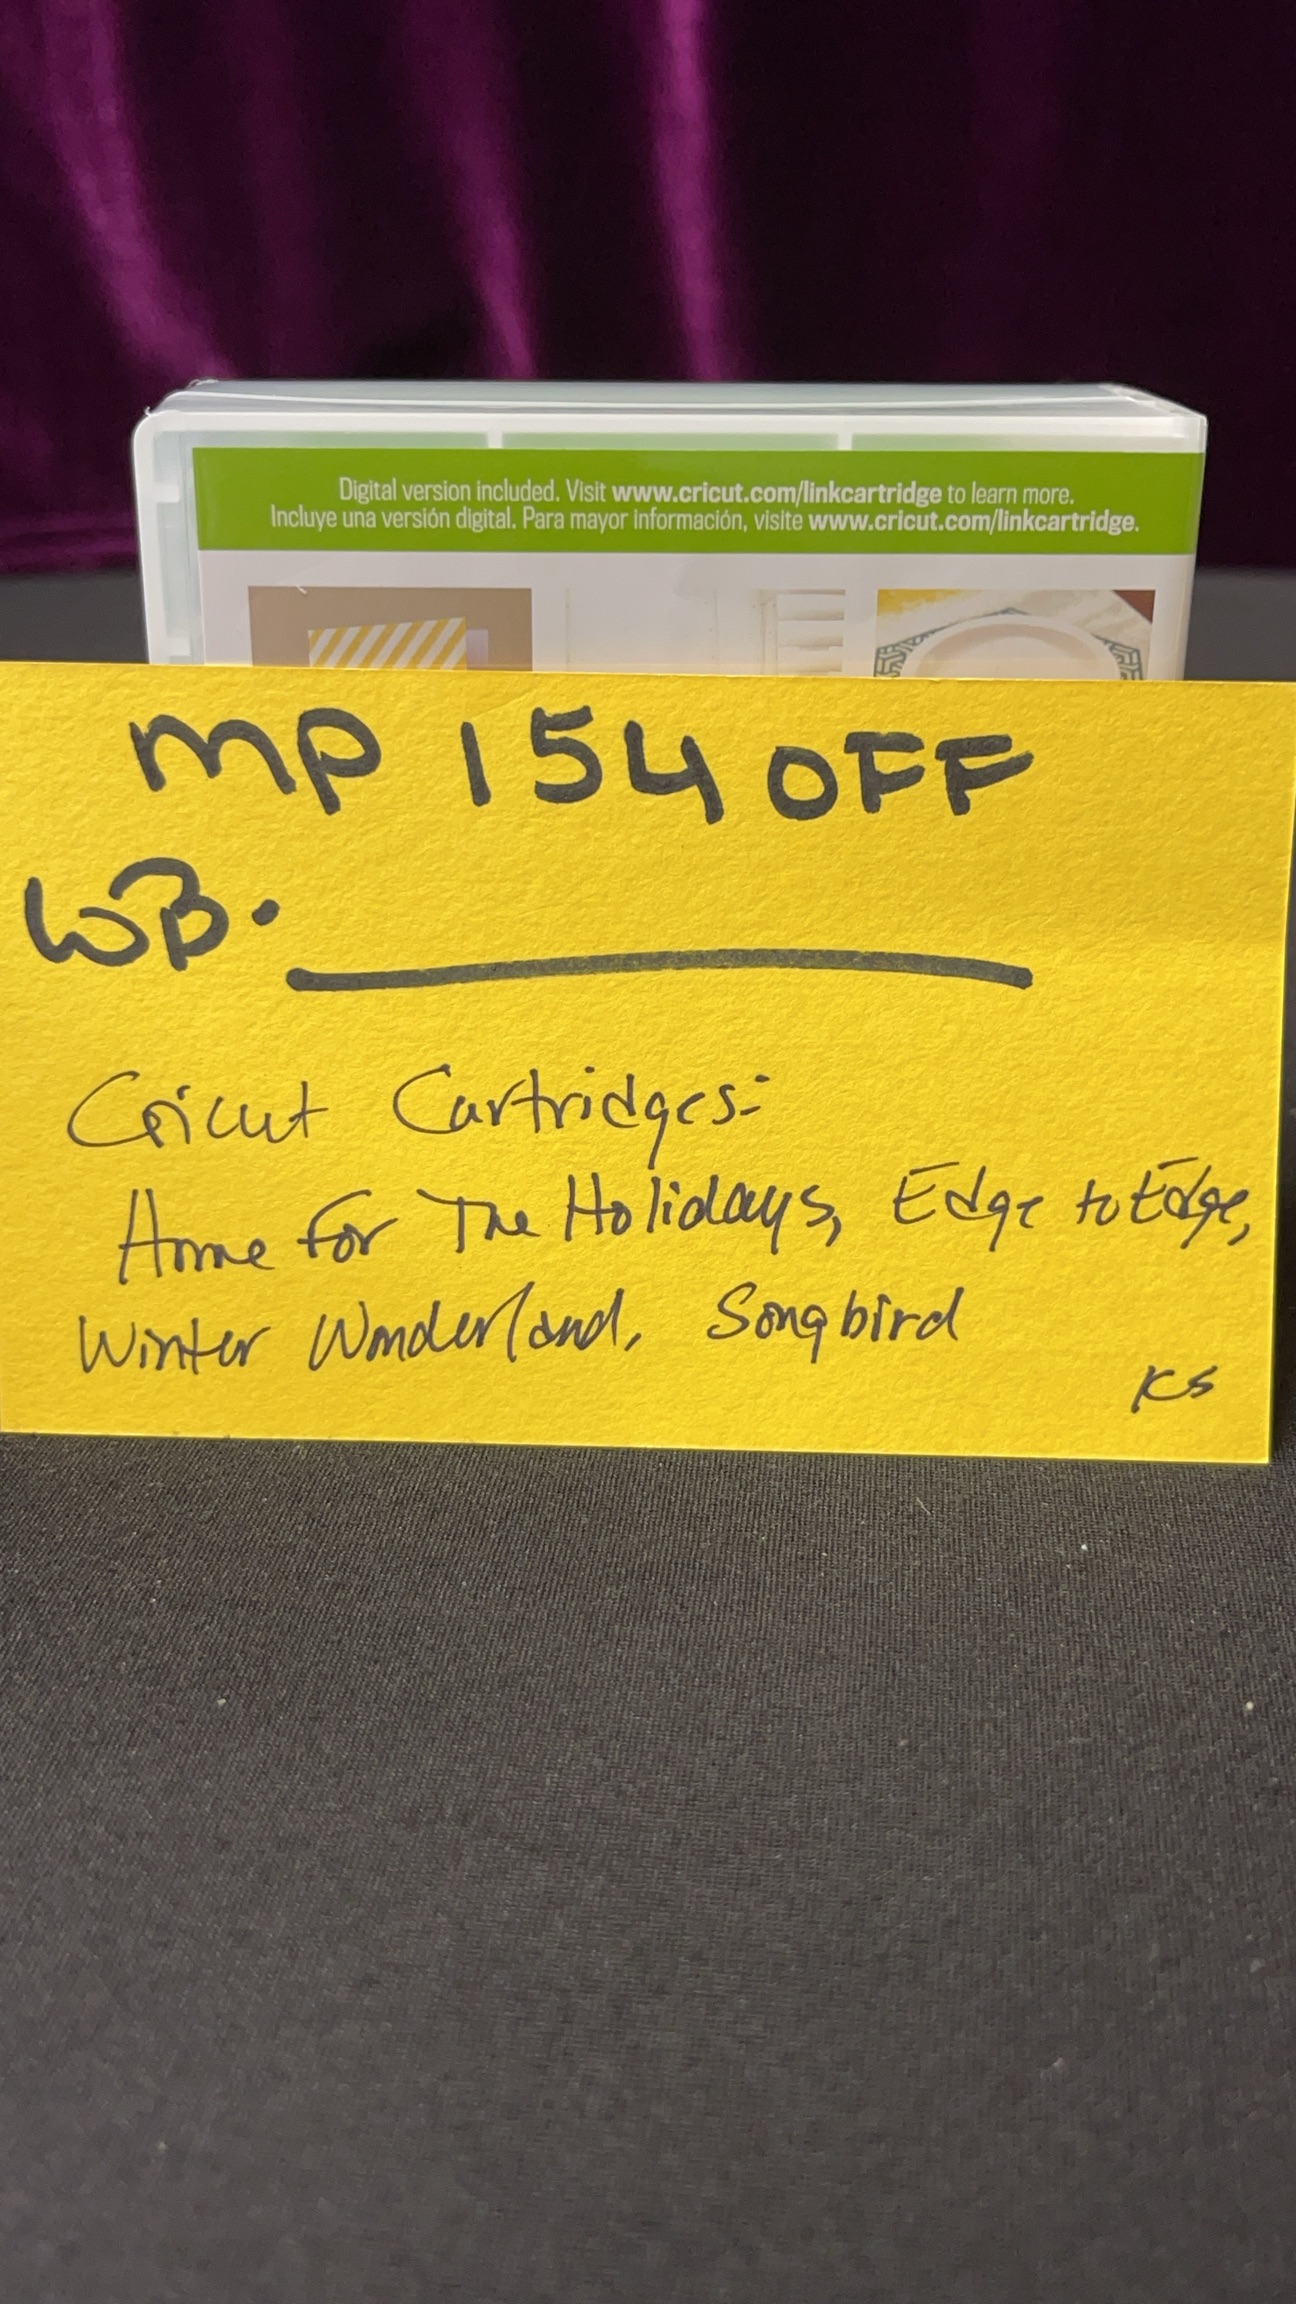 Digital version included. Visit www.cricut.com/linkcartridge to learn more.
Incluye una versión digital. Para mayor información, visite www.cricut.com/linkcartridge.
MP 154 OFF
WB.
Cricut Cartridges:
Home For The Holidays, Edge to Edge,
Winter Wonderland, Songbird
KS